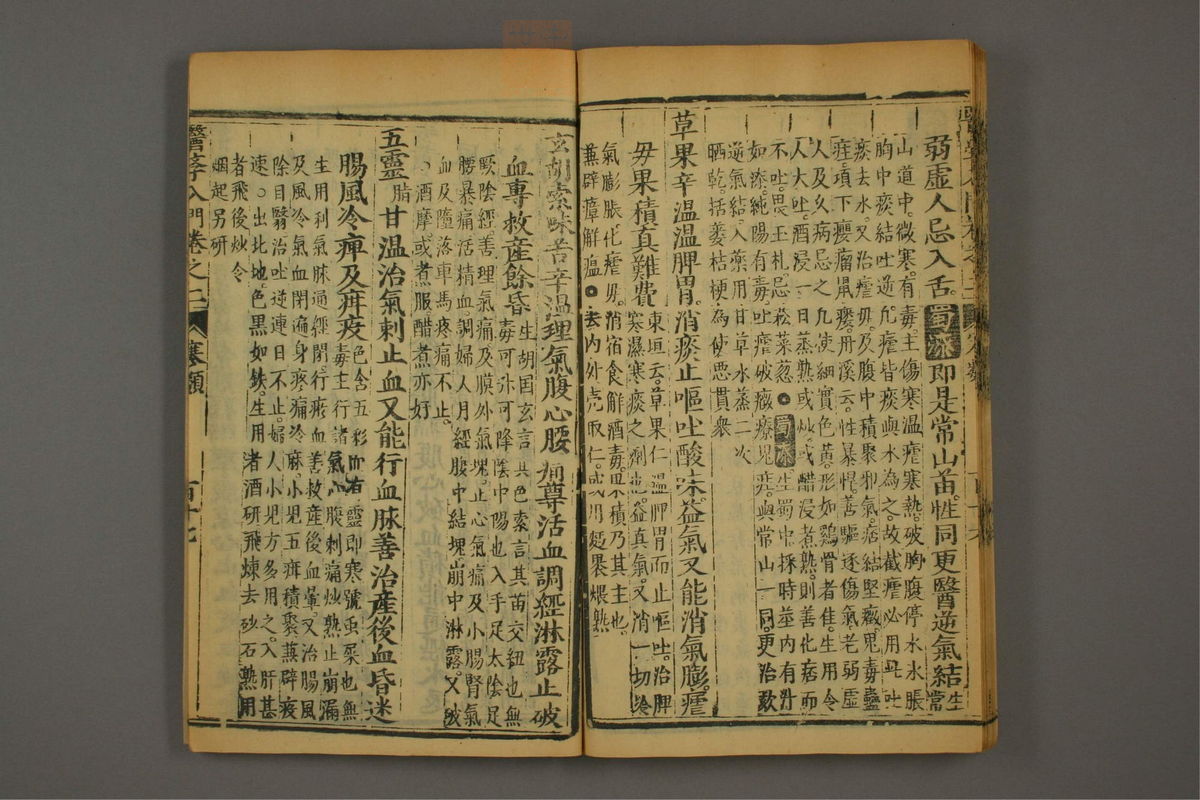 弱虛人忌入舌。蜀漆即是常山苗。性同更醫逆氣結生常
山道中。微寒。有毒。主傷寒溫瘧寒熱。破胸腹停水水脹
胸中痰結吐逆。凡瘧皆痰與水為之。故截瘧必用毋吐
痰去水。又治瘧毋及腹中積聚邪氣。痞結堅癥。鬼毒蠱
疰。項下癭瘤鼠瘻。丹溪云。性暴悍。善驅逐傷氣。老弱虛
人及久病忌之。凡使細實色黃。形如雞骨者佳。生用令
人大吐。酒浸一日蒸熟或炒。或醋浸煮熟。則善化痞而
不吐。畏玉札。忌菘菜葱。蜀漆生蜀中採時莖內有汁
如漆。純陽有毒。吐瘧破癥療鬼疰。與常山一同。更治欬
逆氣結。入藥用甘草水蒸二次
晒乾。栝蔞桔梗為使。惡貫衆
草果辛溫溫脾胃。消痰止嘔吐酸味。益氣又能消氣膨。瘧
毋果積真難費
東垣云。草果仁溫脾胃而止嘔吐。治脾
寒濕寒痰之劑也。益真氣。又消一切冷
氣膨脹。化瘧毋。消宿食解酒毒。果積乃其主也。
蕪辟瘴解瘟。去內外壳取仁。或用麪裹煨熟
玄胡索味苦辛溫。理氣腹心腰痛尊。活血調經淋露止。破
血專救產餘昏
生胡国玄言其色索言其苗交紐也無
毒可升可降陰中陽也入手足太陰足
厥陰經。善理氣痛及膜外氣塊。止心氣痛及小腸腎氣
腰暴痛活精血。調婦人月經腹中結塊。崩中淋露。又破
血及墮落車馬疼痛不止。
酒摩或煮服醋煮亦好
五靈脂甘溫治氣刺止血又能行血脉善治產後血昏迷
腸風冷痺及疳疫
色含五彩而有靈即寒號虫屎也無
毒主行諸氣心腹刺痛炒熟止崩漏
生用利氣脉通經閉。行瘀血善救產後血暈。又治腸風
及風冷氣血閉遍身疼痛冷麻小兒五疳積聚蕪辟疫
除目翳治吐逆連日不止。婦人小兒方多用之。入肝甚
速。出北地。色黑如鉄。生用者酒研飛煉去砂石熟用
者飛後炒令
烟起另研
醫學入門卷之二
寒類
百十七